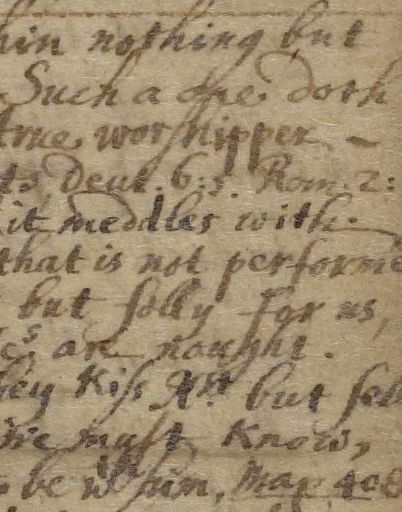 hin nothing but
Such a one doth
true worshipper –
ts, Deut. 6:5. Rom. 2:
it meddles with.
that is not performe
but folly for us,
es are nought.
hey Kiss Xt but
We must Know,
be wth him, Mar